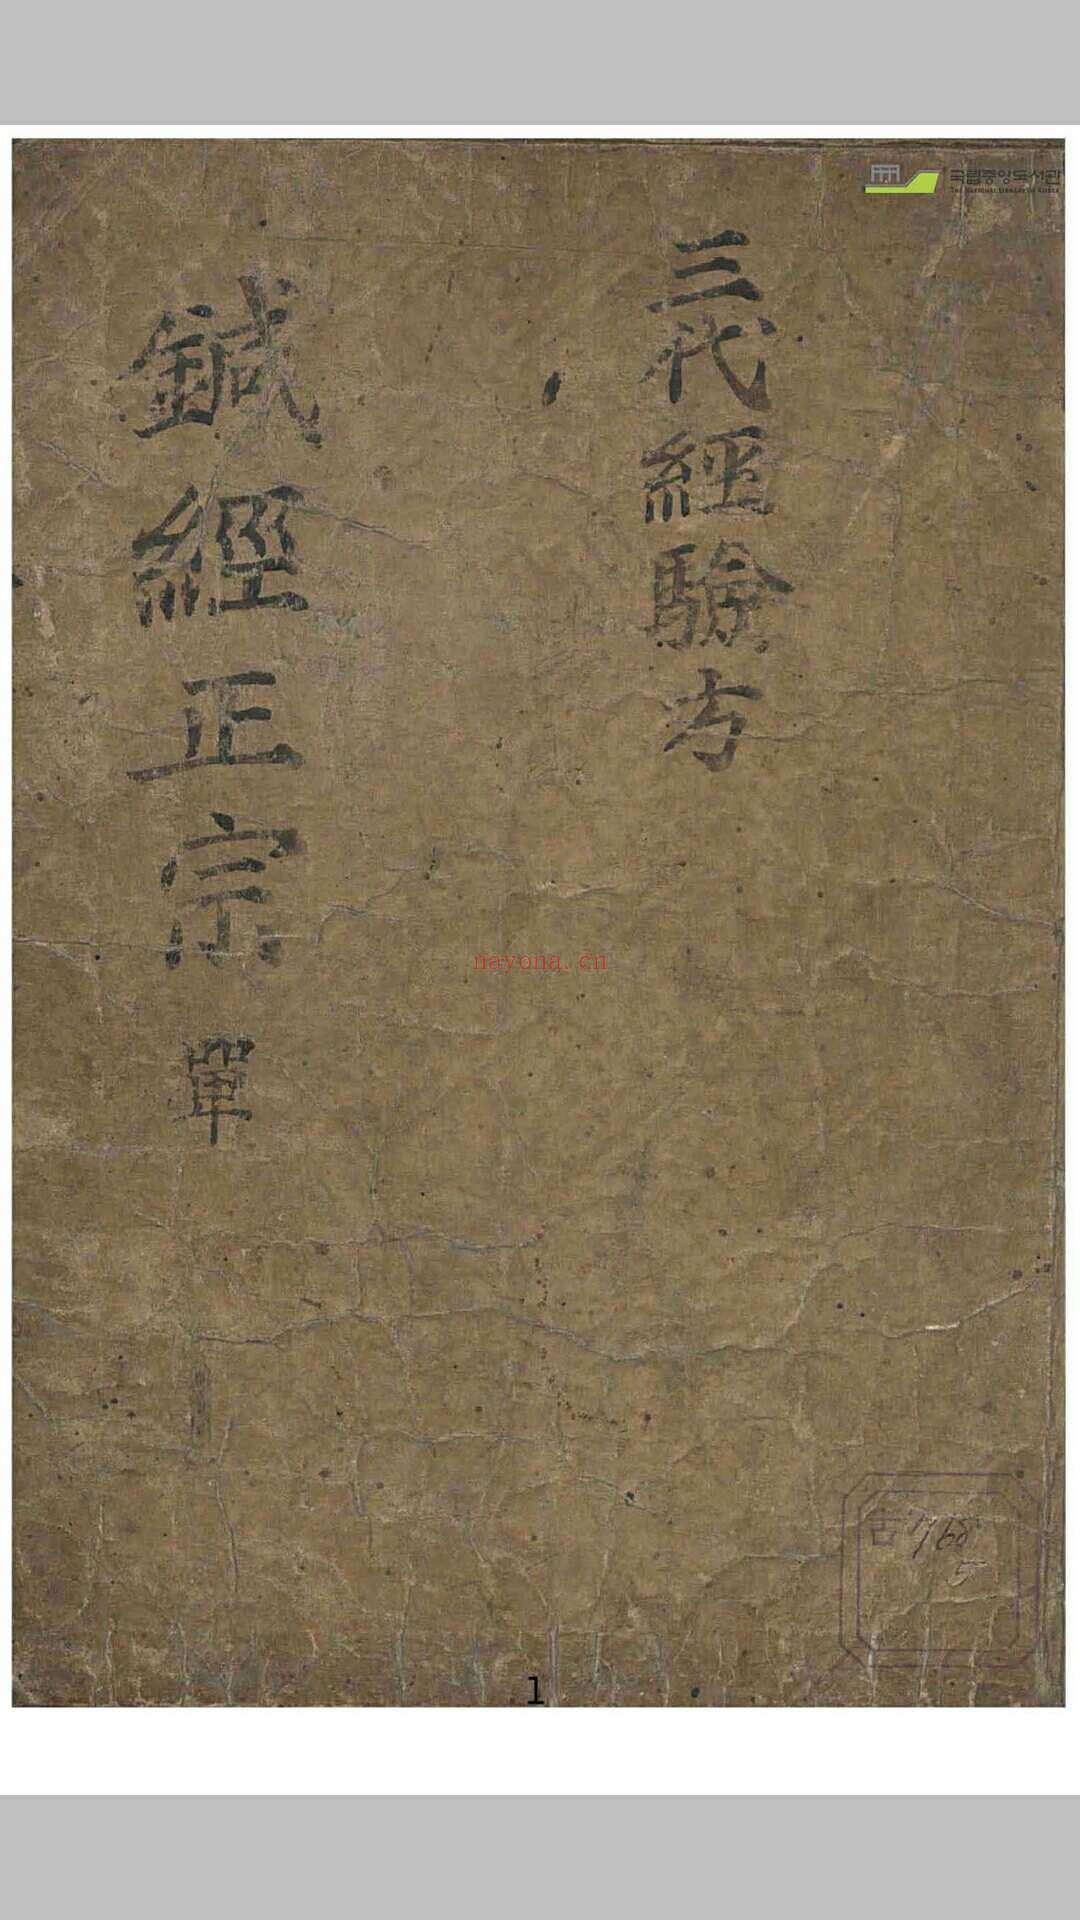 국립중앙도서관
THE NATIONAL LIBRARY OF KOREA
三代經驗方
鍼經正宗 單
nayona.cn
古7160
5
1